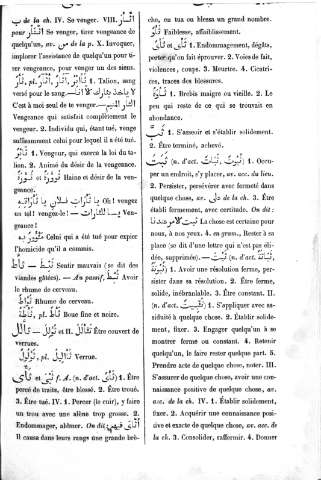 ب de la ch. IV. Se venger. VIII. إِثَّأَرَ
pour إِثْتَأَرَ Se venger, tirer vengeance de
quelqu'un, av. من de la p. X. Invoquer,
implorer l'assistance de quelqu'un pour ti-
rer vengeance, pour venger un des siens.
ثَأْر, pl. 1. Talion, sang
versé pour le sang.
C'est à moi seul de te venger. 
Vengeance qui satisfait complètement le
vengeur. 2. Individu qui, étant tué, venge
suffisamment celui pour lequel il a été tué.
ثَائِر 1. Vengeur, qui exerce la loi du ta-
lion. 2. Animé du désir de la vengeance.
Haine et désir de la ven-
geance.
Oh ! vengez
un tel ! vengez-le ! — Ven-
geance !
Celui qui a été tué pour expier
l'homicide qu'il a commis.
ثَأَطَ — Sentir mauvais (se dit des
viandes gâtées). — Au passif, Avoir
le rhume de cerveau.
Rhume de cerveau.
ثَأْطَة, pl. Boue fine et noire.
et II. Être couvert de
verrues.
ثُؤْلُول, pl. ثَآلِيل Verrue.
f. A. (n. d'act. ) 1. Être
percé de traits, être blessé. 2. Être troué.
3. Être tué. IV. 1. Percer (le cuir), y faire
un trou avec une alène trop grosse. 2.
Endommager, abîmer. On dit :
Il causa dans leurs rangs une grande brè-
che, ou tua ou blessa un grand nombre.
Faiblesse, affaiblissement.
1. Endommagement, dégâts,
perte qu'on fait éprouver. 2. Voies de fait,
violences, coups. 3. Meurtre. 4. Cicatri-
ces, traces des blessures.
1. Brebis maigre ou vieille. 2. Le
peu qui reste de ce qui se trouvait en
abondance.
ثَبَّ 1. S'asseoir et s'établir solidement.
2. Être terminé, achevé.
ثَبَتَ (n. d'act. ثَبَات, ثُبُوت) 1. Occu-
per un endroit, s'y placer, av. acc. du lieu.
2. Persister, persévérer avec fermeté dans
quelque chose, av. على de la ch. 3. Être
établi fermement, avec certitude. On dit :
La chose est certaine pour
nous, à nos yeux. 4. en gram., Rester à sa
place (se dit d'une lettre qui n'est pas éli-
dée, supprimée). — (n. d'act.
) 1. Avoir une résolution ferme, per-
sister dans sa résolution. 2. Être ferme,
solide, inébranlable. 3. Être constant. II.
(n. d'act. تَثْبِيت) 1. S'appliquer avec as-
siduité à quelque chose. 2. Établir solide-
ment, fixer. 3. Engager quelqu'un à se
montrer ferme ou constant. 4. Retenir
quelqu'un, le faire rester quelque part. 5.
Prendre acte de quelque chose, noter. III.
S'assurer de quelque chose, avoir une con-
naissance positive de quelque chose, av.
acc. de la ch. IV. 1. Établir solidement,
fixer. 2. Acquérir une connaissance posi-
tive et exacte de quelque chose, av. acc. de
la ch. 3. Consolider, raffermir. 4. Donner